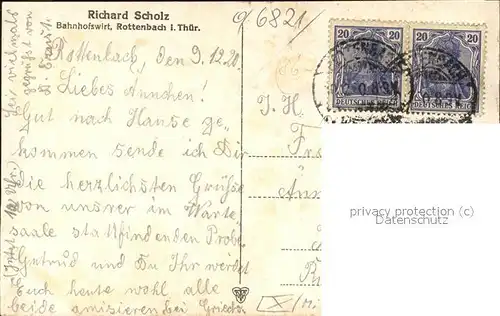 Richard Scholz
Bahnhofswirt, Rottenbach i. Thür.
9 6821
Rottenbach, den 9.12.20
Liebes Annchen!
Gut nach Hause ge-
kommen sende ich Dir
die herzlichsten Grüße
von unsrer im Warte
saale stattfindenden Probe.
Gertrud und Du Ihr werdet
Euch heute wohl alle
beide amüsieren bei
Sei vielmals
gegrüßt von
(Jetzt 10 Uhr)
J. H.
20
20
DEUTSCHES REICH
DEUTSCHES REICH
privacy protection (c)
Datenschutz